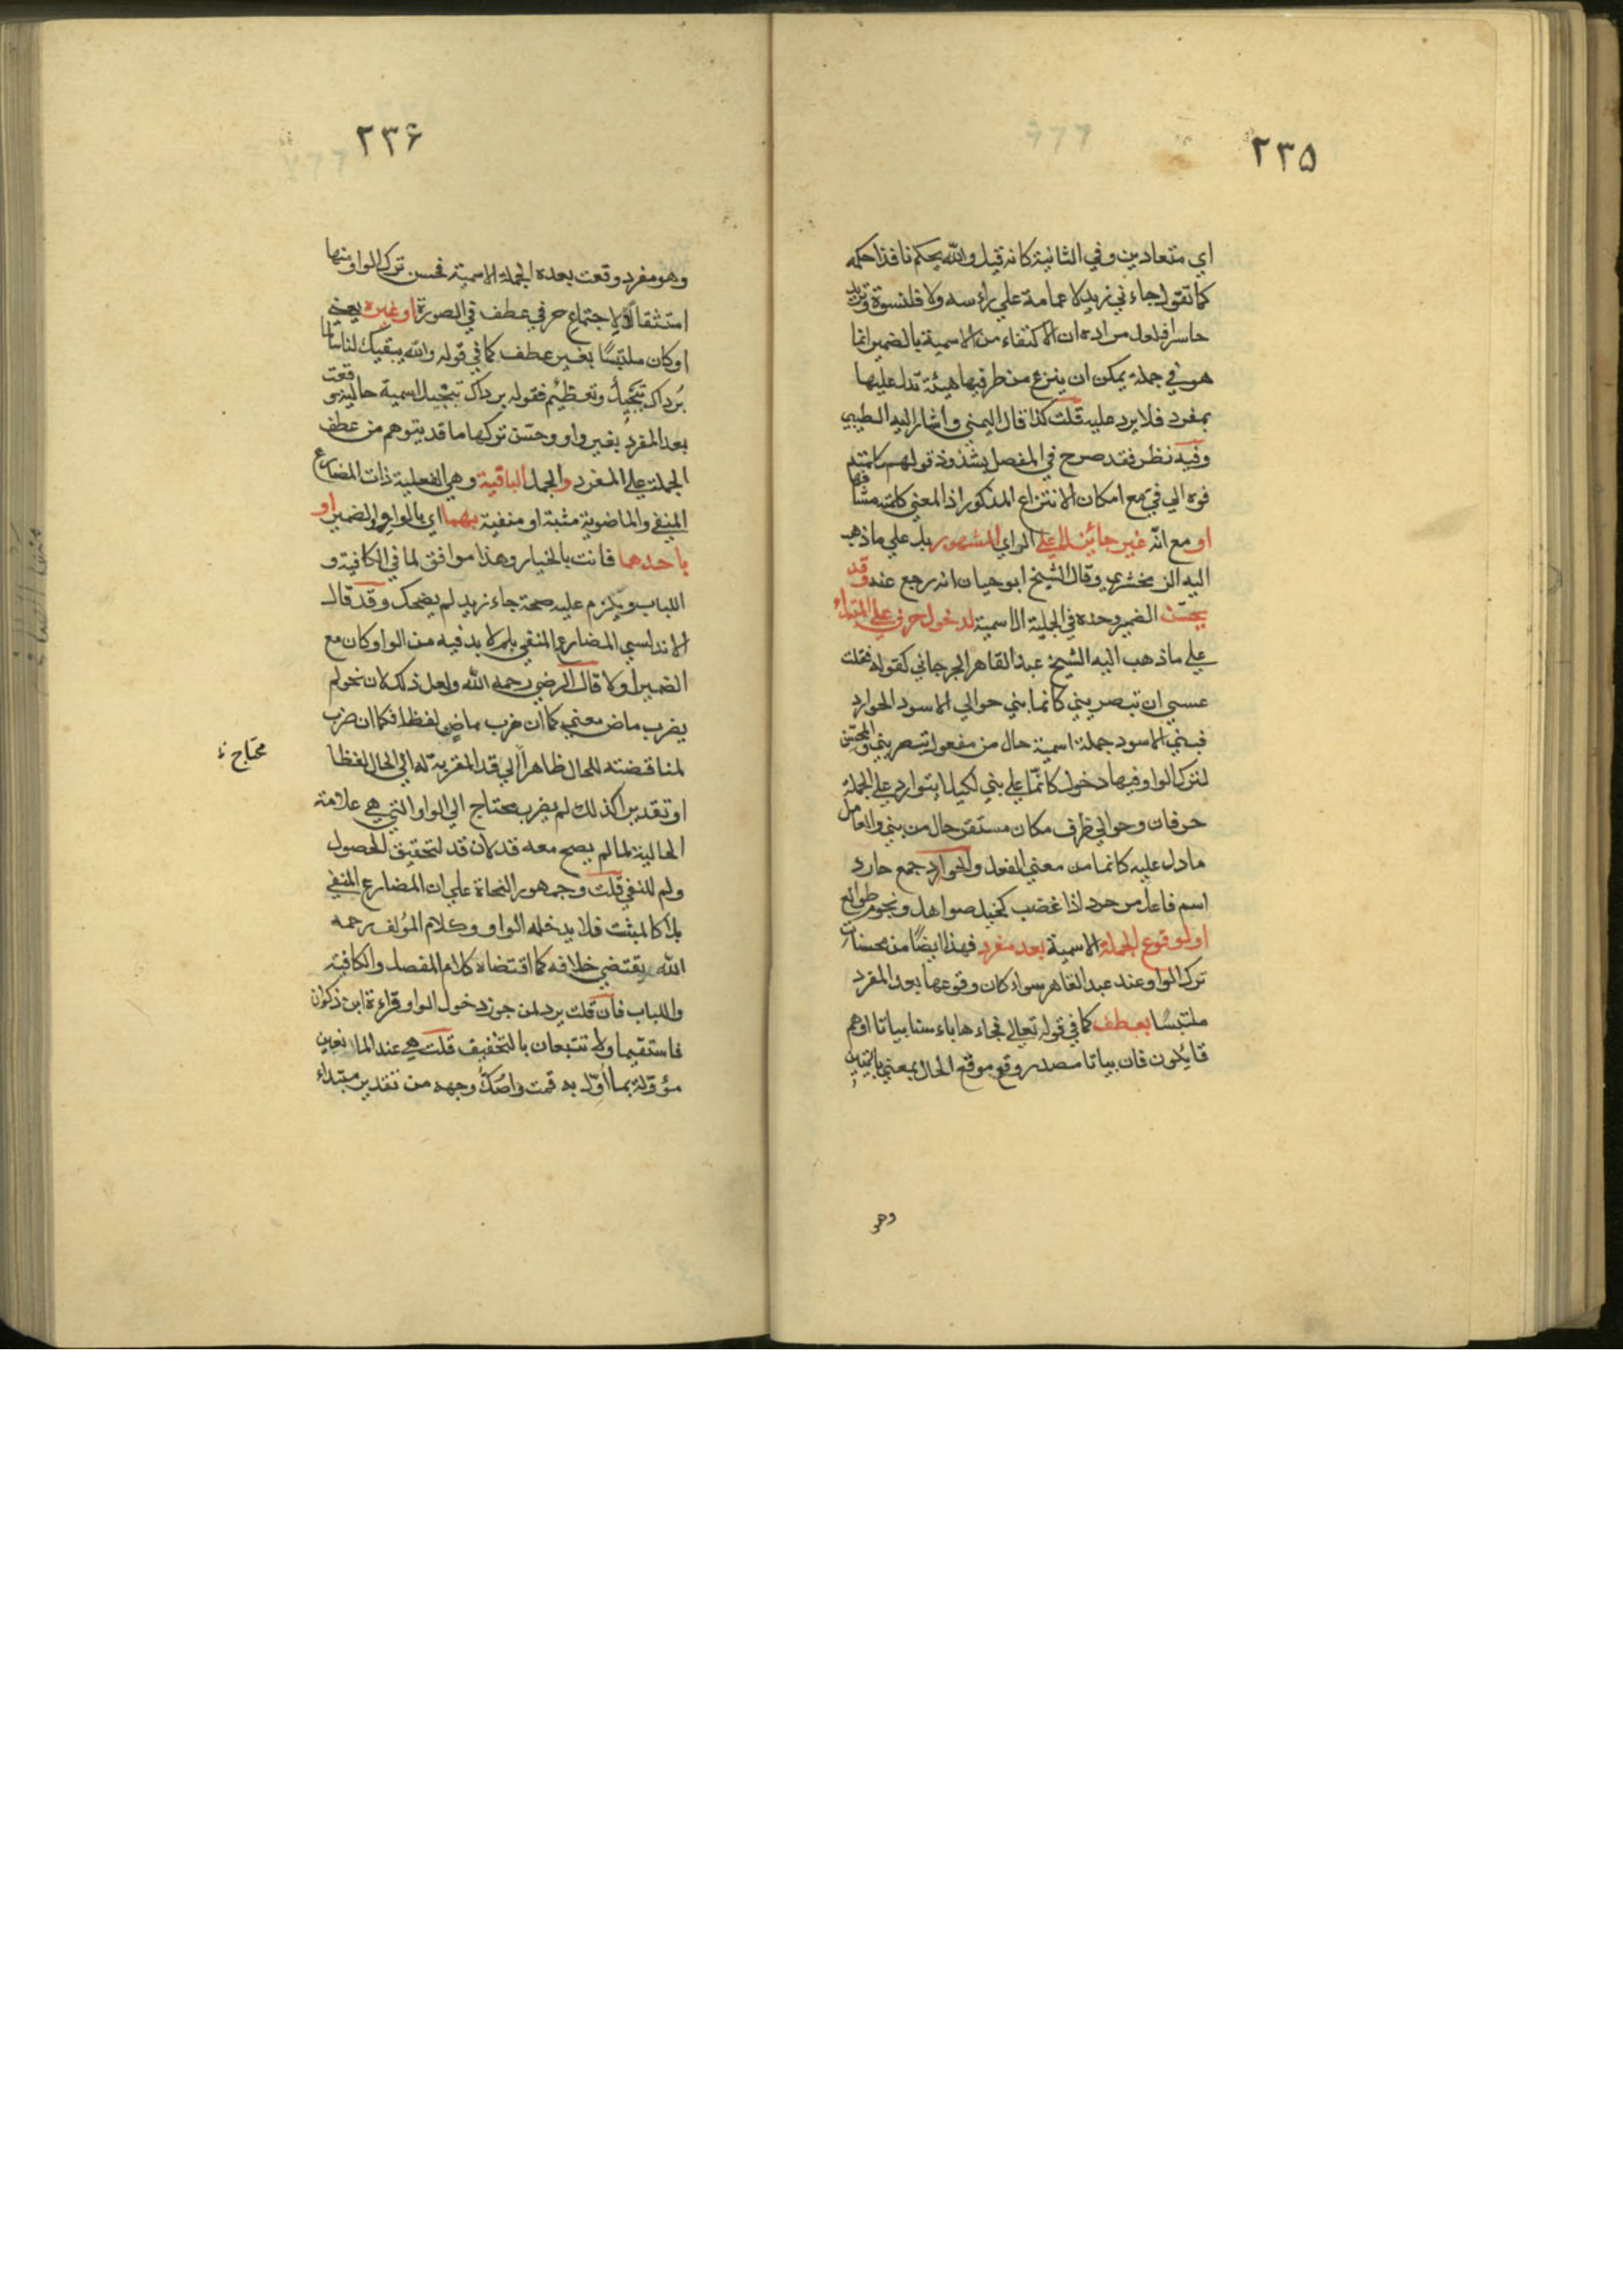 ٢٣٥
اي متعادين وفي الثانية كانه قيل والله يحكم نافذا حكمه
كما تقول جاءني زيد لا عمامة علي راسه ولا قلنسوة وتريد
حاسرا فلعل مراده ان الاكتفاء من الاسمية بالضمير انما
هو في جملة يمكن ان ينزع من طرفيها هيئة تدل عليها
بمفرد فلا يرد عليه قلت كذا قال اليمني واشار اليه الطيبي
وفيه نظر فقد صرح في المفصل بشذوذ قولهم كلمته
فوه الي في مع امكان الانتزاع المذكور اذ المعني كلمته مشافها
او مع انه غير جائز لا علي الراي المشهور بل علي ما ذهب
اليه الزمخشري وقال الشيخ ابو حيان انه رجع عنه وقد
يحسن الضمير وحده في الجملة الاسمية لدخول حرف علي المبتداء
علي ما ذهب اليه الشيخ عبد القاهر الجرجاني كقوله فقلت
عسي ان تبصريني كانما بني حوالي الاسود الحوارد
فبني الاسود جملة اسمية حال من مفعول تبصريني والمحسن
لترك الواو فيها دخول كانما علي بني لكيلا يتوارد علي الجملة
حرفان وحوالي ظرف مكان مستقر حال من بني والعامل
ما دل عليه كانما من معني الفعل والحوارد جمع حارد
اسم فاعل من حرد اذا غضب كخيل صواهل ونجوم طوالع
او لوقوع الجملة الاسمية بعد مفرد فهذا ايضًا من محسنات
ترك الواو عند عبد القاهر سواء كان وقوعها بعد المفرد
ملتبسًا بعطف كما في قوله تعالي فجاءها باءسنا بياتا او هم
قايلون فان بياتا مصدر وقع موقع الحال بمعني بايتين
وهو
٢٣۶
وهو مفرد وقعت بعده الجملة الاسمية فحسن ترك الواو منها
استثقالًا لاجتماع حرفي عطف في الصورة او غيره يعني
او كان ملتبسًا بغير عطف كما في قوله والله يبقيك لنا سالما
بُرداك تبجيل وتعظيم فقوله برداك تبجيل اسمية حالية وقعت
بعد المفرد بغير واو وحسّن تركها ما قد يتوهم من عطف
الجملة علي المفرد والجمل الباقية وهي الفعلية ذات المضارع
المنفي والماضوية مثبتة او منفية بهما اي بالواو والضمير او
باحدهما فانت بالخيار وهذا موافق لما في الكافية و
اللباب ويلزم عليه صحة جاء زيد لم يضحك وقد قال
الاندلسي المضارع المنفي بلم لا بد فيه من الواو كان مع
الضمير أو لا قال الرضي رحمه الله ولعل ذلك لان نحو لم
يضرب ماض معني كما ان ضرب ماضٍ لفظا فكما ان ضرب
لمناقضته للحال ظاهراً الي قد المقربة له الي الحال لفظا
محتاج
او تقديرا كذلك لم يضرب محتاج الي الواو التي هي علامة
الحالية لما لم يصح معه قد لان قد لتحقيق الحصول
ولم للنفي قلت وجمهور النحاة علي ان المضارع المنفي
بلا كالمثبت فلا يدخله الواو وكلام المؤلف رحمه
الله يقتضي خلافه كما اقتضاه كلام المفصل والكافية
واللباب فان قلت يرد لمن جوز دخول الواو قراءة ابن ذكوان
فاستقيما ولا تتبعان بالتخفيف قلت هي عند المانعين
مؤولة بما أوّل به قمت واصُكّ وجهه من تقدير مبتداء